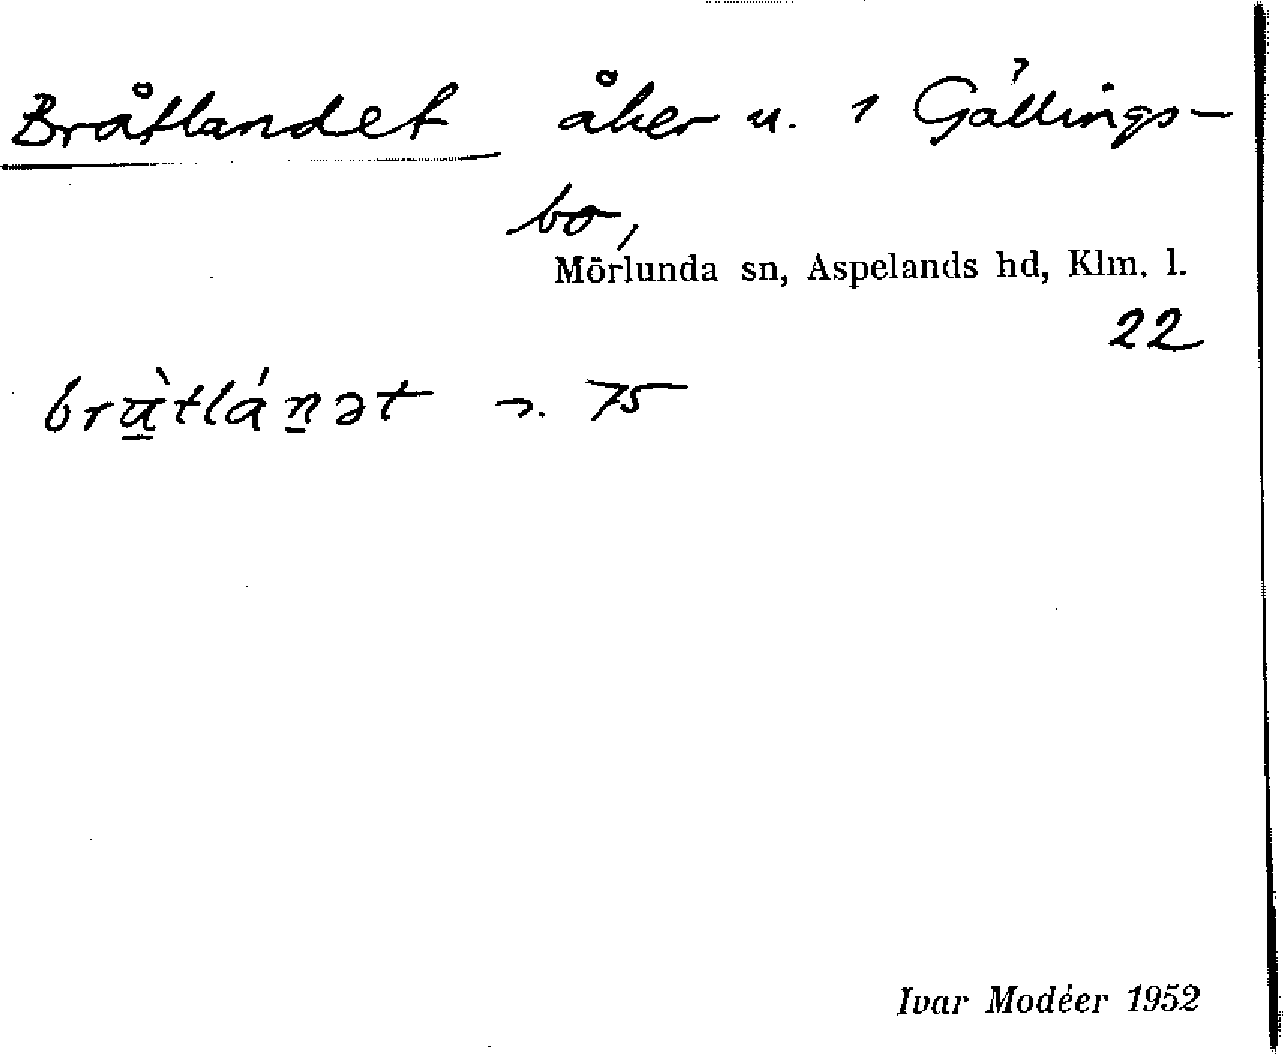 Bråtlandet åker u. 1 Gållings-
bo,
Mörlunda sn, Aspelands hd, Klm. l.
22
75
Ivar Modéer 1952